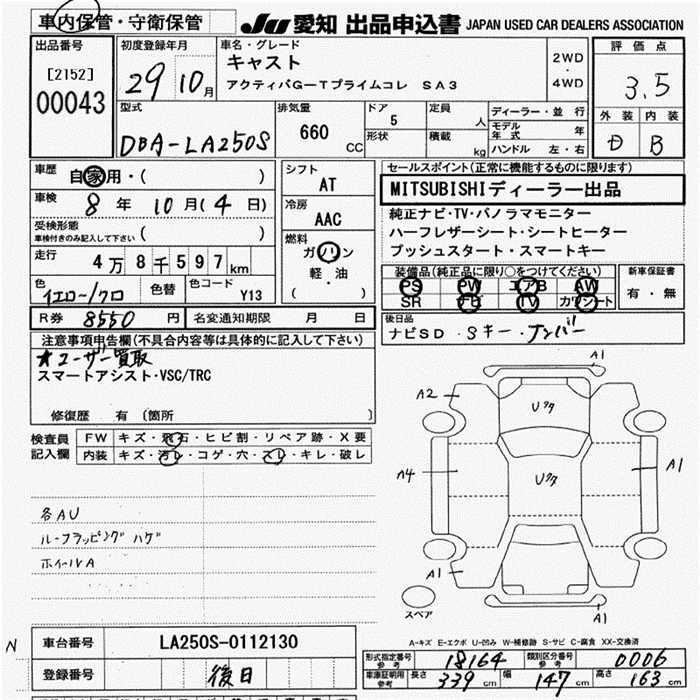 車内保管・守衛保管
JU 愛知 出品申込書 JAPAN USED CAR DEALERS ASSOCIATION
出品番号
[2152]
00043
初度登録年月
29 10月
車名・グレード
キャスト
アクティバG-Tプライムコレ SA3
2WD
・
4WD
評価点
3.5
外装 内装
D B
型式
DBA-LA250S
排気量
660 CC
ドア
5
形状
定員
人
積載
kg
ディーラー・並行
モデル年式 年
ハンドル 左・右
車歴
自家用・( )
車検
8 年 10 月 ( 4 日)
受検形態
車検付きのみ記入して下さい ( )
走行
4万8千597km
色
イエロー/クロ
色替
色コード
Y13
シフト
AT
冷房
AAC
燃料
ガソリン
軽・油
( )
セールスポイント(正常に機能するものに限ります)
MITSUBISHIディーラー出品
純正ナビ・TV・パノラマモニター
ハーフレザーシート・シートヒーター
プッシュスタート・スマートキー
装備品(純正品に限り○をつけてください)
PS PW エアB AW
SR TV カワシート
新車保証書
有・無
R券 8550 円 名変通知期限 月 日
後日品
ナビSD・Sキー・ナンバー
注意事項申告欄(不具合内容等は具体的に記入して下さい)
★ユーザー買取
スマートアシスト・VSC/TRC
修復歴 有 (箇所 )
検査員
記入欄
FW キズ・飛石・ヒビ割・リペア跡・X要
内装 キズ・汚レ・コゲ・穴・スレ・キレ・破レ
各AU
ルーフラッピングハゲ
ホイールA
A1
A2
Uクタ
A4
Uクタ
A1
A1
スペア
A1
A-キズ E-エクボ U-凹み W-補修跡 S-サビ C-腐食 XX-交換済
N
車台番号 LA250S-0112130
登録番号 後日
形式指定番号
参考
18164
類別区分番号
参考
0006
車庫証明用
参考
長さ 339 cm 幅 147 cm 高さ 163 cm